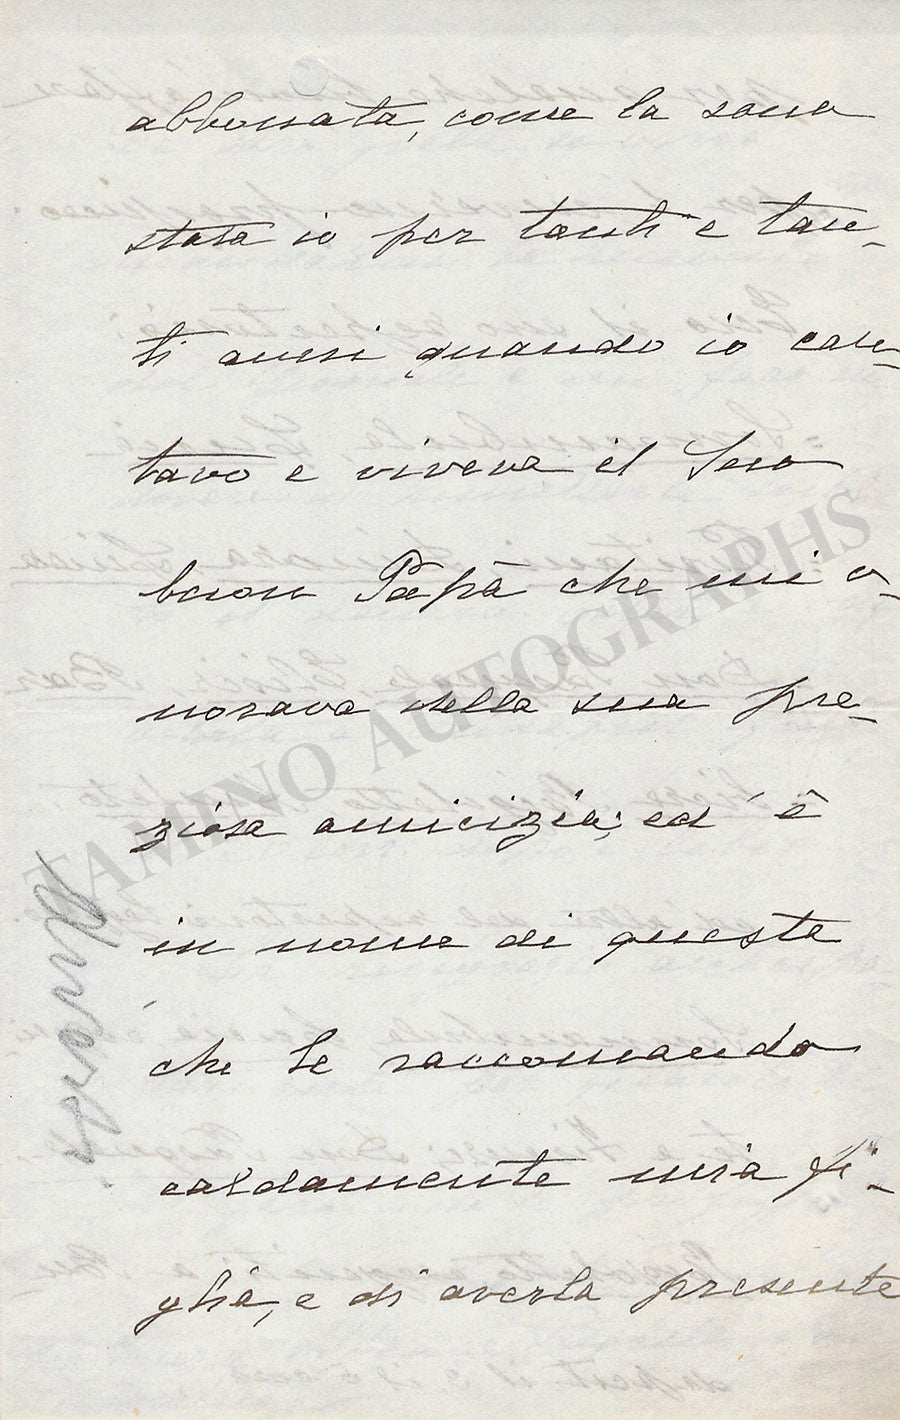 abbonata, come la sono
stata io per tanti e tan-
ti anni quando io can-
tavo e viveva il Suo
buon Papà che mi o-
norava della sua pre-
ziosa amicizia; ed è
in nome di questa
che Le raccomando
caldamente mia fi-
glia, e di averla presente
TAMINO AUTOGRAPHS